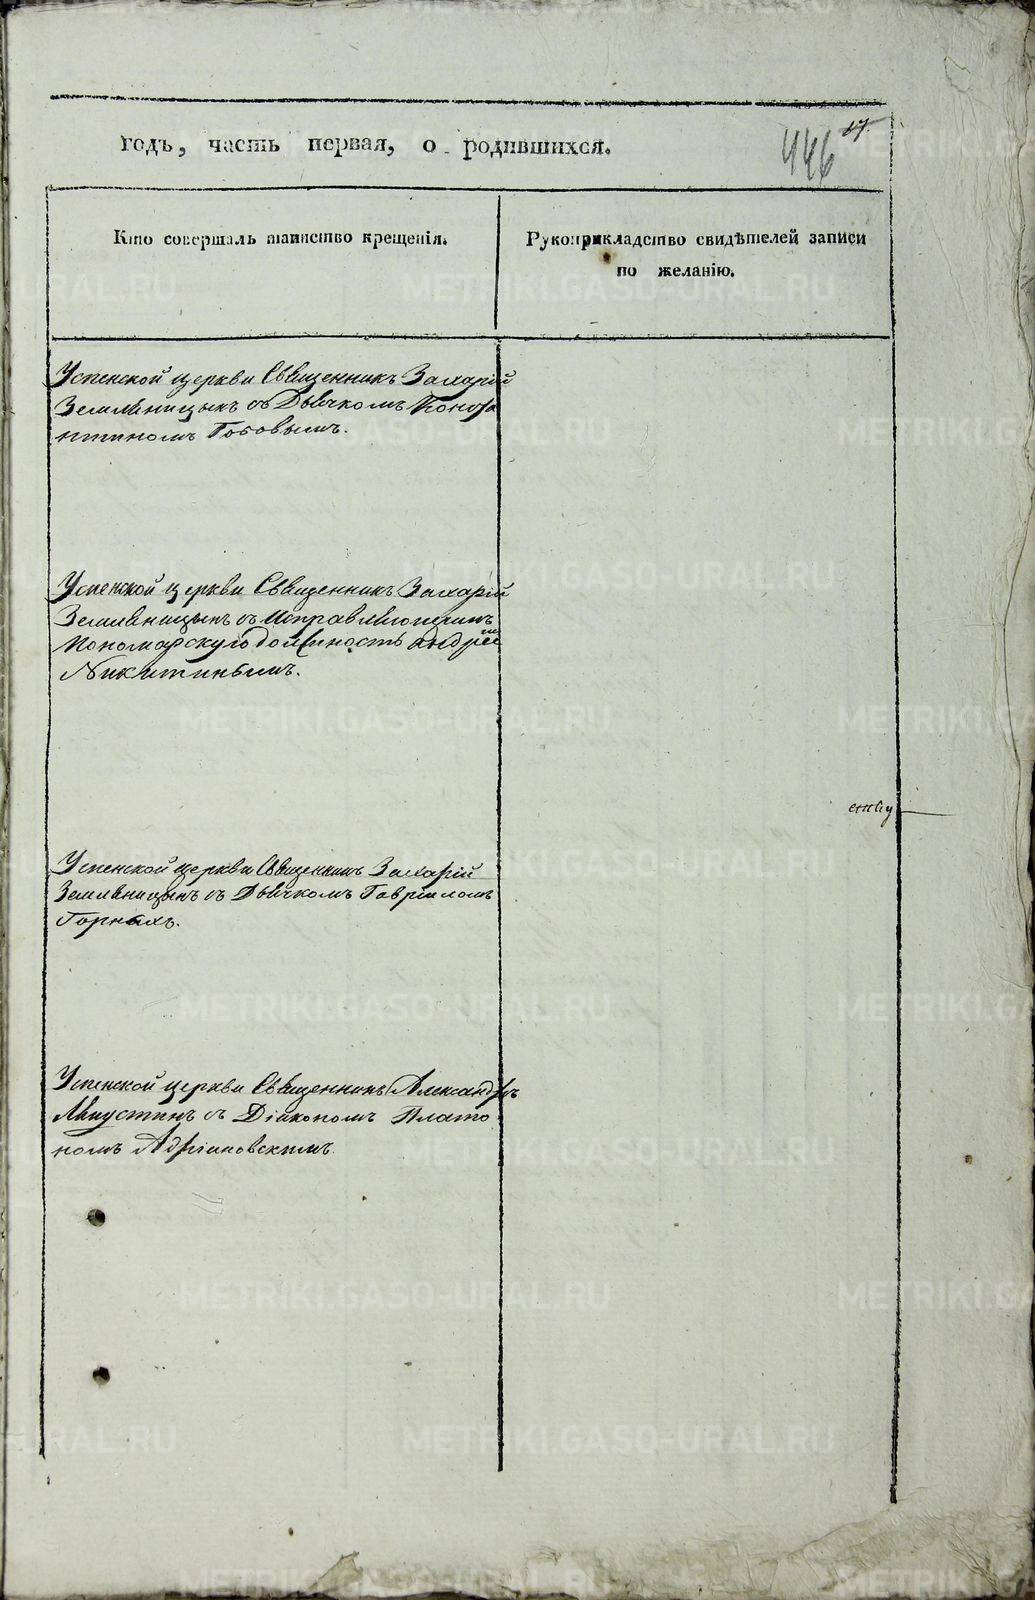 годъ, часть первая, о родившихся.
446 17.
Кто совершалъ таинство крещенія.
Рукоприкладство свидѣтелей записи
по желанію.
Успенской церкви Священникъ Захарій
Землѣницынъ съ Дьячкомъ Конста
нтиномъ Поповымъ.
Успенской церкви Священникъ Захарій
Землѣницынъ съ Исправляющимъ
Пономарскую должность Андреем
Никитинымъ.
Успенской церкви Священникъ Захарій
Землѣницынъ съ Дьячкомъ Гавріиломъ
Горныхъ.
Успенской церкви Священникъ Александръ
съ Діакономъ Плато
номъ Адріановскимъ.
METRIKI.GASO-URAL.RU